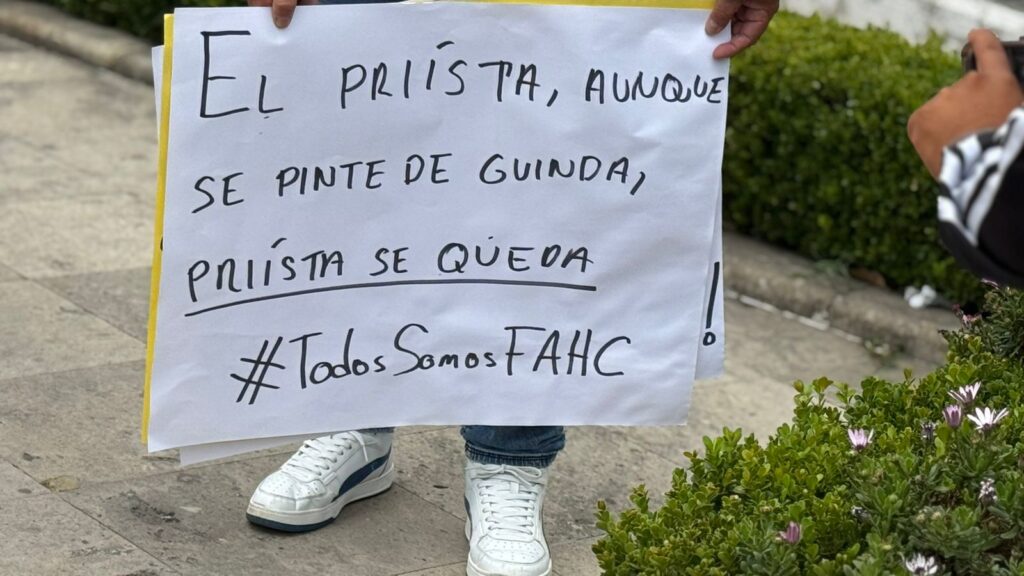 EL PRIÍSTA, AUNQUE
SE PINTE DE GUINDA,
PRIÍSTA SE QUEDA
#TodosSomosFAHC
!